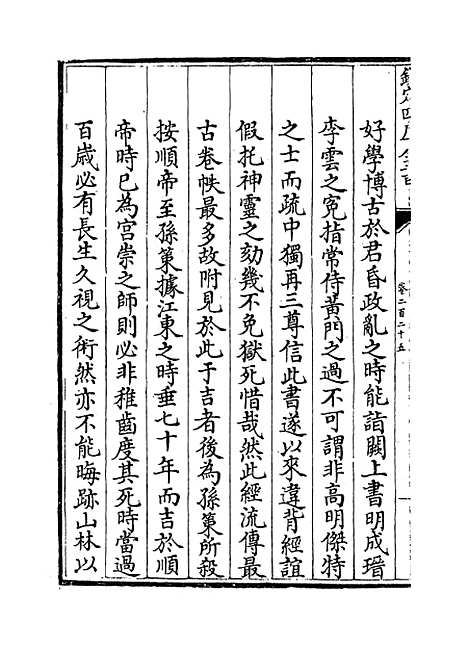 欽定四庫全書
卷二百二十五
好學博古於君昏政亂之時能詣闕上書明成瑨
李雲之寃指常侍黃門之過不可謂非高明傑特
之士而疏中獨再三尊信此書遂以來違背經誼
假托神靈之劾幾不免獄死惜哉然此經流傳最
古卷帙最多故附見於此于吉者後為孫策所殺
按順帝至孫策據江東之時垂七十年而吉於順
帝時已為宫崇之師則必非稚齒度其死時當過
百歲必有長生久視之術然亦不能晦跡山林以